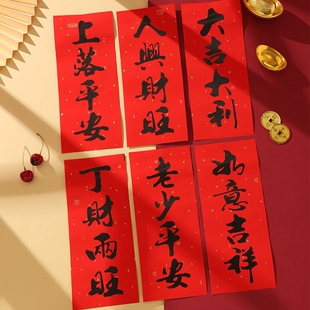 上落平安
人興財旺
大吉大利
丁財兩旺
老少平安
如意吉祥